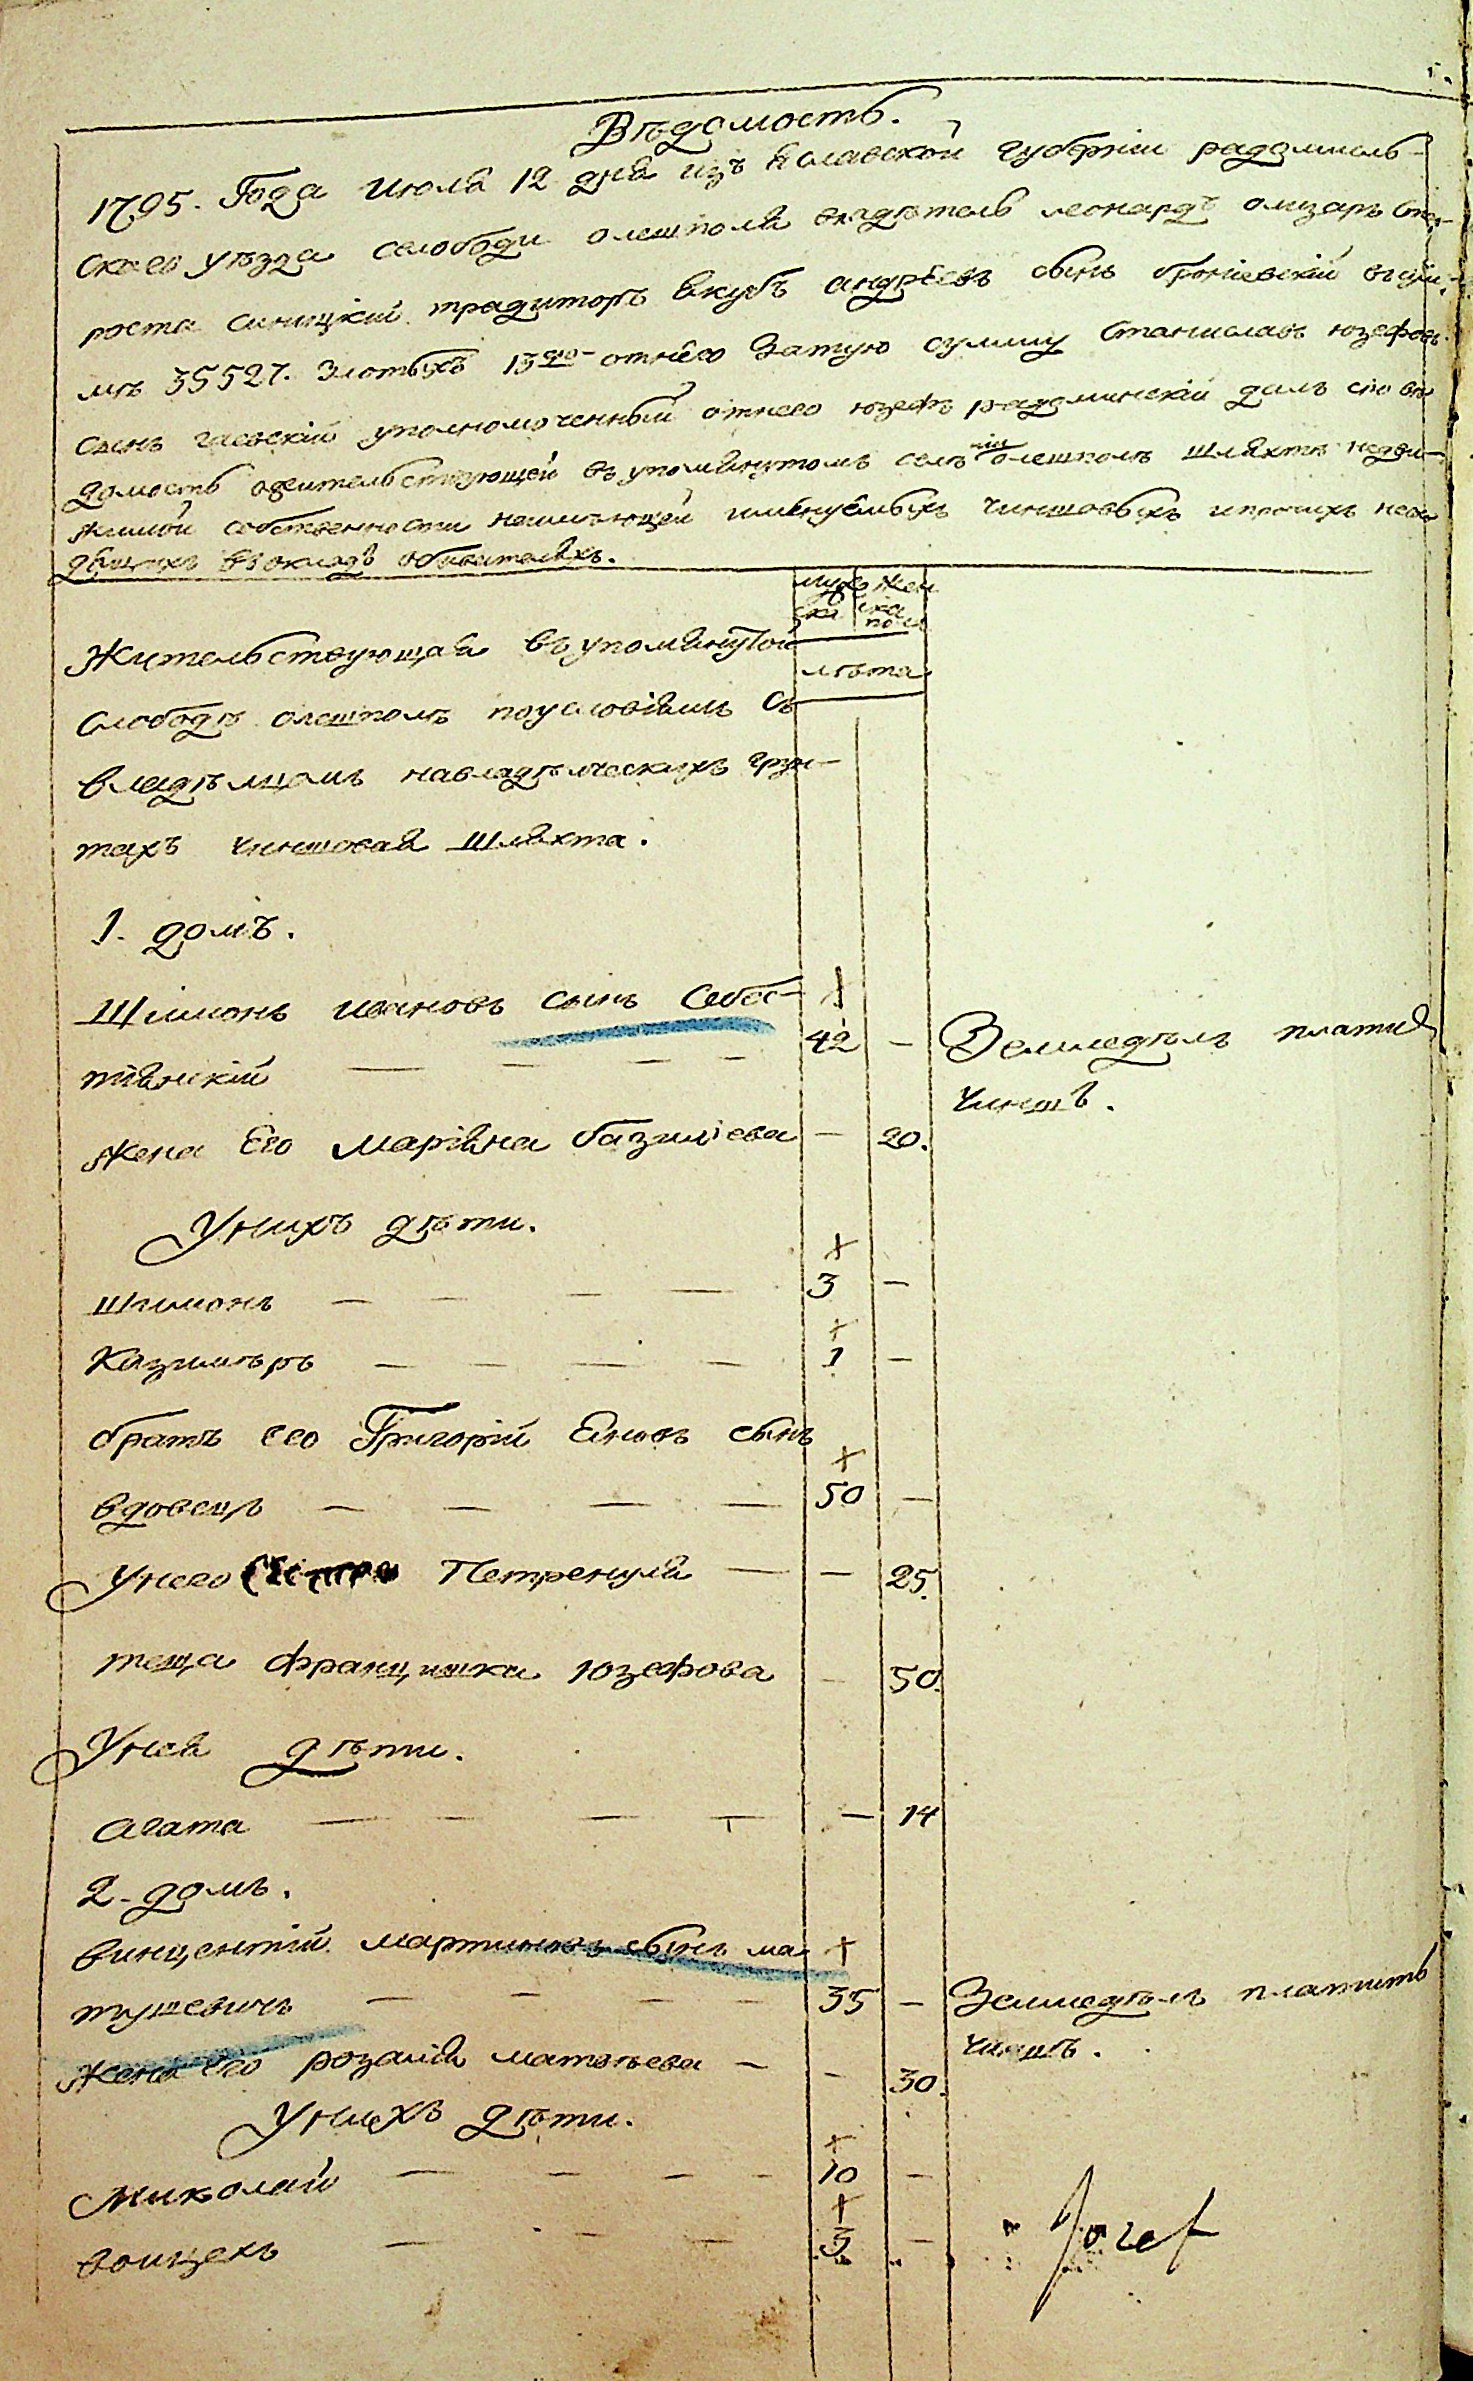 Вѣдомость.
1795. Года Июля 12 дня изъ Ѣславской губернїи радомысль-
скаго уѣзда слободи олешполя владѣтель леонардъ олизаръ
роста синицкій традиторъ Якубъ андрѣевъ сынъ броніевскій всум-
мѣ 35527. злотыхъ 13 отнего Затую сумму Станиславъ юзефовъ
сынъ гаевскій уполномоченный отнего юзефъ радоминскій далъ сію вѣ
домость жительствующей въ упомянутомъ селѣ олешполѣ шляхтѣ недви-
жимой собственности неимѣющей именуемыхъ чиншовыхъ ипрочихъ
вокладѣ обивателяхъ.
муж жен
ска ска
пола
лѣта
Жительствующая въ упомянутой
слободѣ олешполѣ поусловіямъ съ
владѣлцомъ навладѣлческихъ грун-
тахъ чиншовая шляхта.
1. домъ.
Шимонъ ивановъ сынъ Себес- +
тіянскій — — — — 42 — Земледѣлъ платит
чиншъ.
жена Его маріяна базиліева — 20.
Унихъ дѣти.
+
шимонъ — — — — 3 —
+
казимѣръ — — — — 1 —
братъ его Григорій Яновъ сынъ
+
вдовецъ — — — — 50 —
Унего Петренуля — — 25.
теща францишка юзефова — 50.
Унея дѣти.
агата — — — — — 14
2. домъ.
винцентій мартиновъ сынъ ма +
тушевичъ — — — — 35 — Земледѣлъ платитъ
чиншъ.
жена его розалія матвѣева — — 30.
Унихъ дѣти.
+
миколай — — — — 10 —
+
воицехъ — — — 5 — Jozef